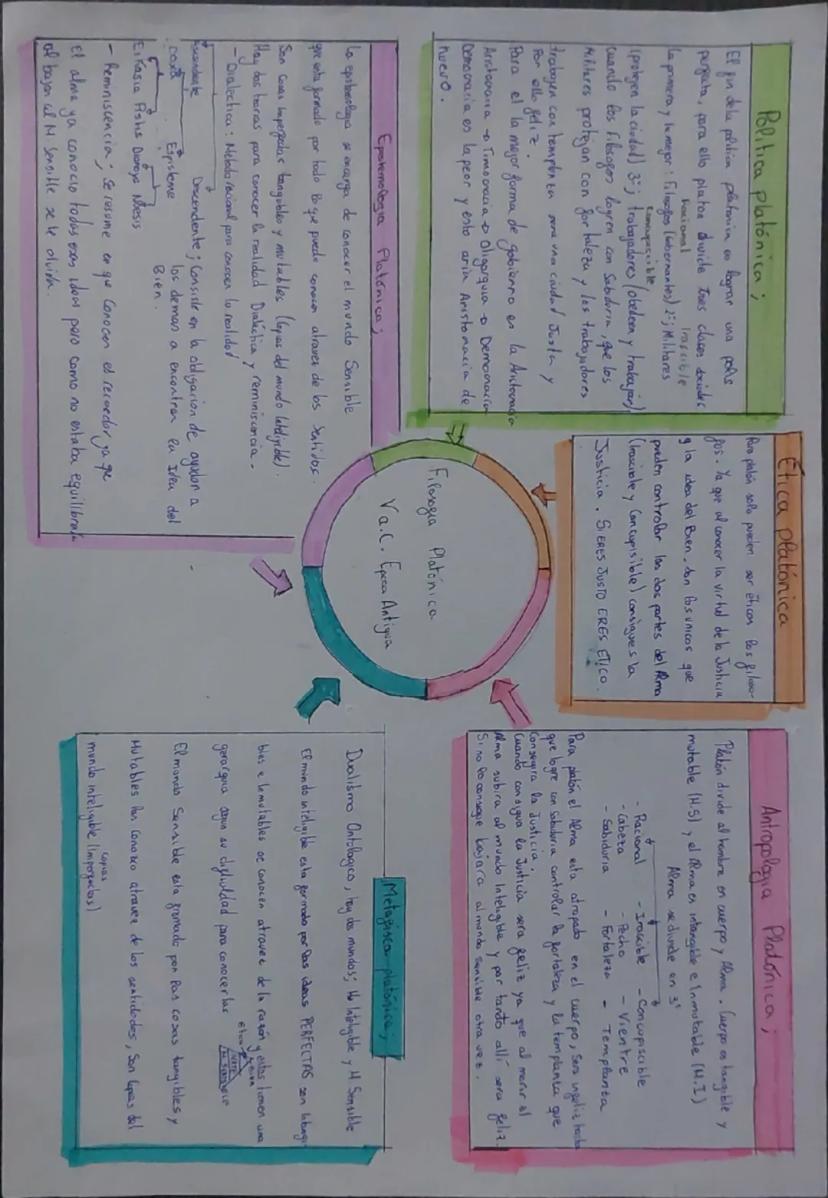 Politica platónica;
El fin de la politica platonica es lograr una polis
perfecta, para ello platon divide tres clases sociales
Racional Irascible
la primera y la mejor: Filosofos (Gobernantes) 2ª; Militares
Concupiscible
(protegen la ciudad) 3ª; trabajadores (obedecen y trabajan)
cuando los filosofos logren con Sabiduria que los
Militares protejan con fortaleza y los trabajadores
trabajen con templanza sera una ciudad Justa y
Por ello feliz.
Para el la mejor forma de gobierno es la Aristocracia
Aristocracia → Timocracia → Oligarquia → Democracia
Democracia es la peor y esto aria Aristocracia de
nuevo.
Ética platónica
Para platón solo pueden ser éticos los filoso-
fos. Ya que al conocer la virtud de la Justicia
y la idea del Bien. Son los unicos que
pueden controlar las dos partes del Alma
(Irascible y Concupiscible) consigues la
Justicia. SI ERES JUSTO ERES ETICO.
Antropologia Platónica;
Platón divide al hombre en cuerpo y Alma. Cuerpo es tangible y
mutable (M.S) y el Alma es intangible e Inmutable (M.I)
Alma se divide en 3ª
- Racional - Irascible - Concupiscible
- Cabeza - Pecho - Vientre
- Sabiduria - Fortaleza - Templanza
Para platón el Alma esta atrapado en el cuerpo, Sera infeliz hasta
que logre con Sabiduria controlar la fortaleza y la templanza que
Conseguira la Justicia.
Cuando consigua la Justicia sera feliz ya que al morir el
Alma subira al mundo Inteligible y por tanto allí sera feliz.
Si no lo consigue bajara al mundo sensible otra vez.
Epistemologia Platónica;
La epistemologia se encarga de conocer el mundo Sensible
que esta formado por todo lo que puedo conocer atraves de los Sentidos.
Son cosas imperfectas tangibles y mutables (Copias del mundo Inteligible).
Hay dos teorias para conocer la realidad Dialéctica y reminiscencia.
- Dialectica: Metodo racional para conocer la realidad
Ascendente Descendente; Consiste en la obligacion de ayudar a
doxa Episteme los demas a encontrar la Idea del
Bien.
Eikasia Pistis Dianoya Noesis
- Reminiscencia; Se resume en que Conocer es recordar ya que
el alma ya conocio todas esas ideas pero como no estaba equilibrada
al bajar al M Sensible se le olvida.
Filosofia Platónica
V a.C. Epoca Antigua
Metafisica platónica;
Dualismo Ontologico, hay dos mundos; M Inteligible y M Sensible
El mundo inteligible esta formado por las ideas PERFECTAS son Intangi-
bles e Inmutables se conocen atraves de la razón y estas tienen una
gerarquia segun su dificuldad para conocerlas
El mundo Sensible esta formado por las cosas tangibles y
Mutables las conozco atraves de los sentidos, Son Copias del
copias
mundo inteligible (imperfectas)